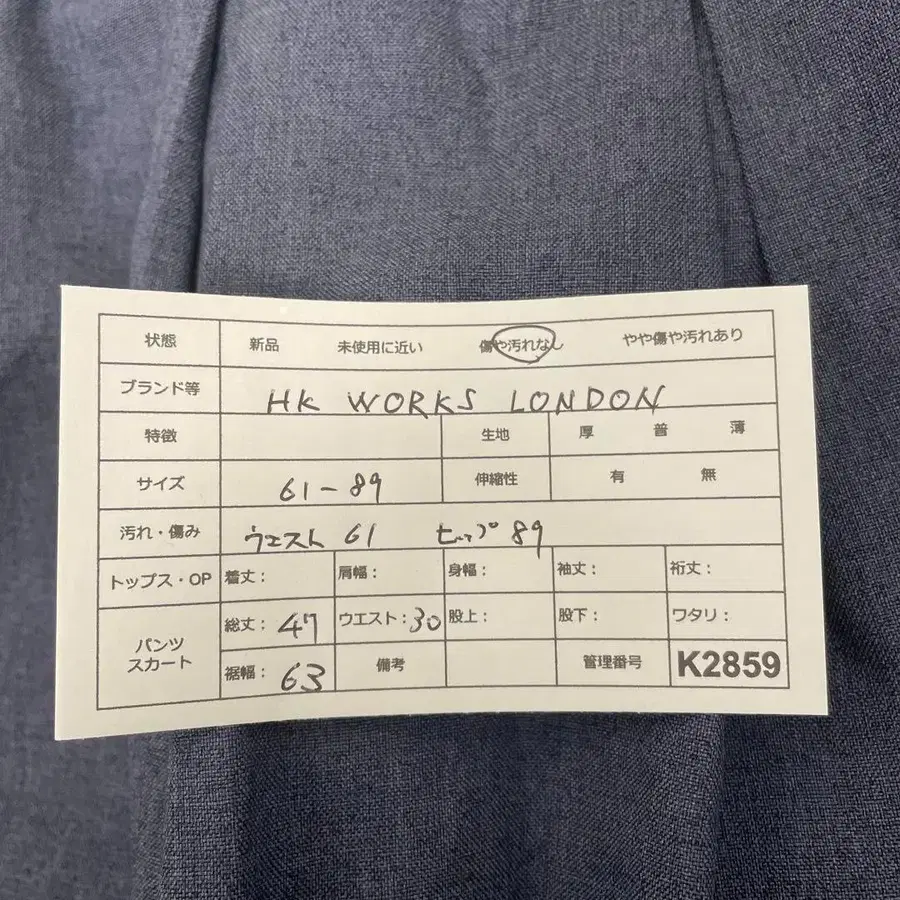 状態 新品 未使用に近い 傷や汚れなし やや傷や汚れあり
ブランド等 HK WORKS LONDON
特徴 生地 厚 普 薄
サイズ 61-89 伸縮性 有 無
汚れ・傷み ウエスト 61 ヒップ 89
トップス・OP 着丈： 肩幅： 身幅： 袖丈： 裄丈：
パンツ スカート 総丈： 47 ウエスト：30 股上： 股下： ワタリ：
裾幅： 63 備考 管理番号 K2859